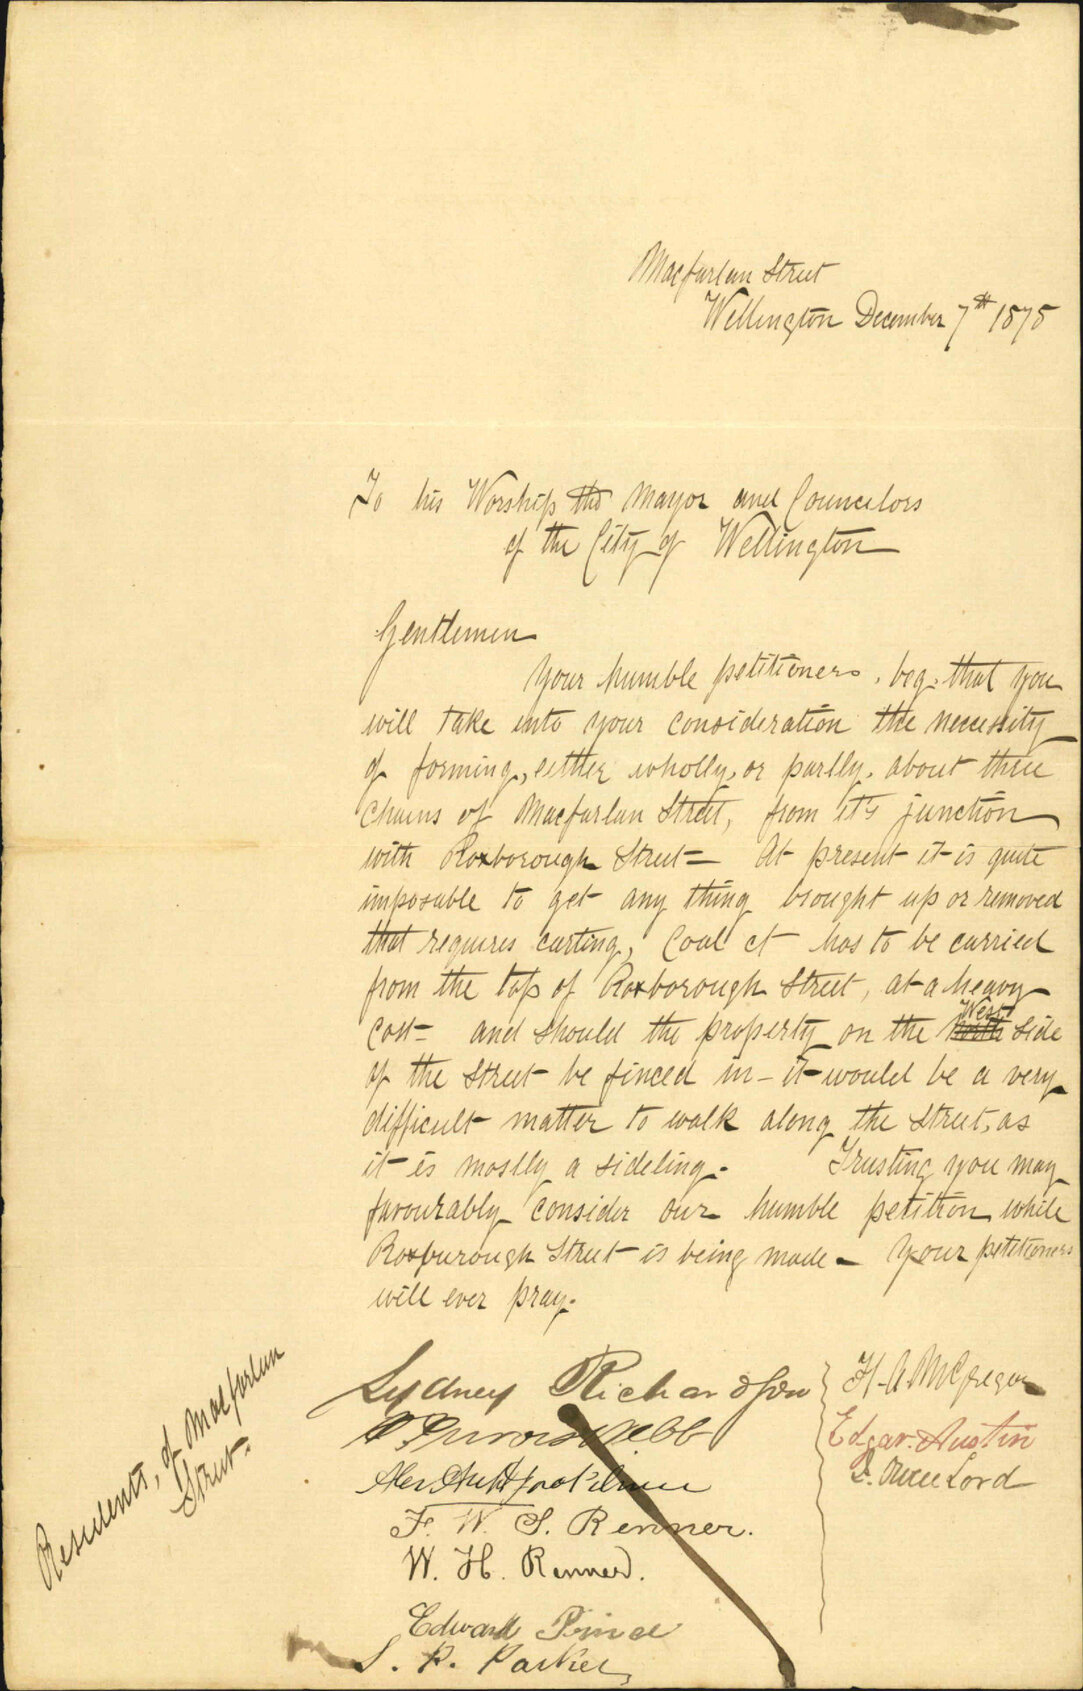 Macfarlan Street
Wellington December 7th 1878
To his Worship the Mayor and Councilors
of the City of Wellington
Gentlemen
Your humble petitioners, beg, that you
will take into your consideration the necessity
of forming, either wholly, or partly, about three
chains of Macfarlan Street, from it's junction
with Roxborough Street = At present it is quite
imposable to get any thing brought up or removed
that requires carting, Coal ct has to be carried
from the top of Roxborough Street, at a heavy
cost - and should the property on the West side
of the Street be finced in - it would be a very
difficult matter to walk along the Street, as
it is mostly a sideling. Trusting you may
favourably consider our humble petition while
Roxburough Street is being made - Your petitioners
will ever pray.
Sydney Richardson
H. A McGregor
Edgar Austin
Lord
F. W. S. Renner.
W. H. Renner.
Edward Prince
S. P. Parker
Residents, of Macfarlan
Street.